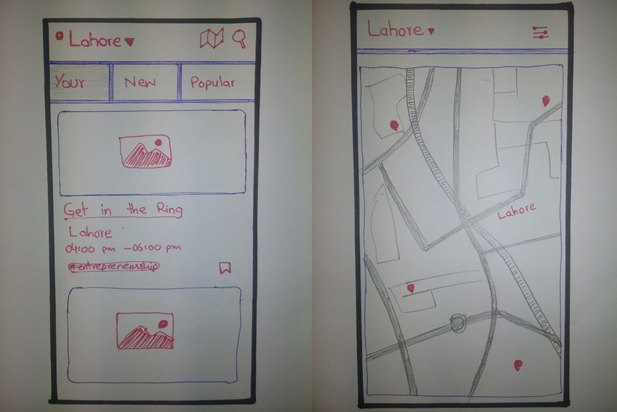 Lahore
Your New Popular
Get in the Ring
Lahore
04:00 pm – 05:00 pm
#entrepreneurship
Lahore
Lahore